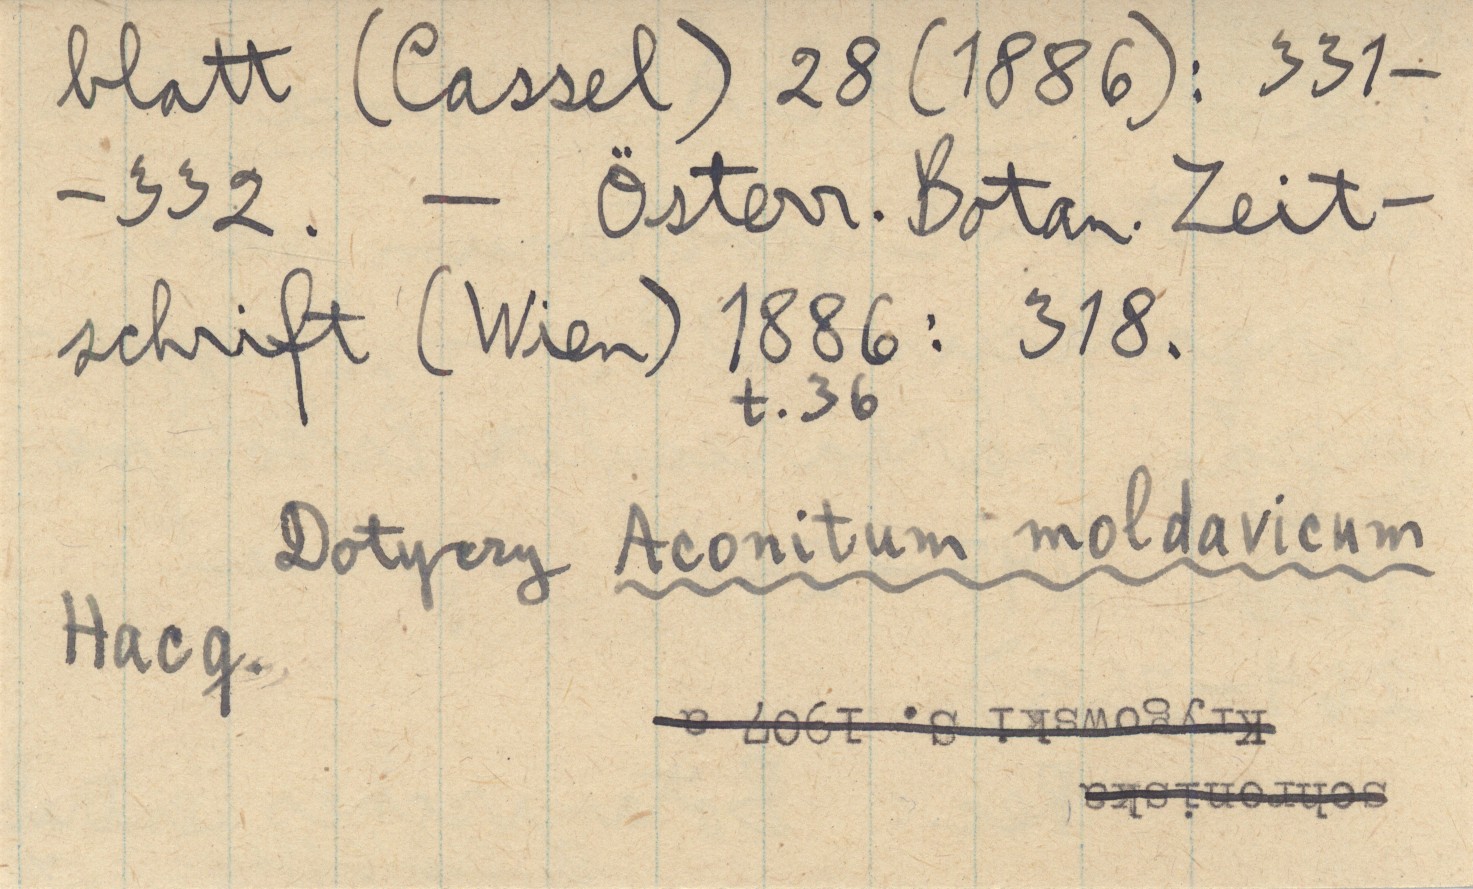 blatt (Cassel) 28 (1886): 331-
-332. — Österr. Botan. Zeit-
schrift (Wien) 1886: 318.
t. 36
Dotyczy Aconitum moldavicum
Hacq.
schroniska
Krygowski S. 1907 a